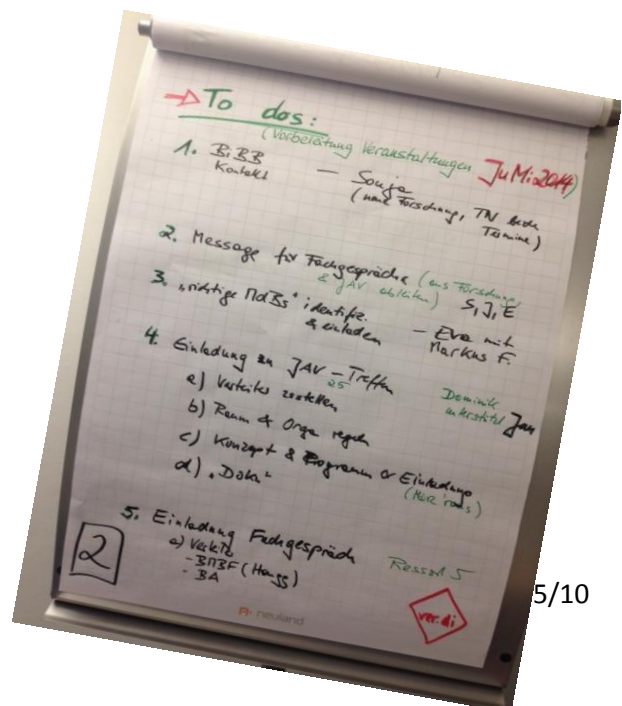 → To dos:
(Vorbereitung Veranstaltungen Ju Mi 2014)
1. BiBB — Sonja
Kontakt (neue Forschung, TN beide
Termine)
2. Message für Fachgespräche (aus Forschung
& JAV ableiten) S, J, E
3. „richtige MdBs“ identifiz.
& einladen — Eva mit
Markus F.
4. Einladung zu JAV-Treffen
25
a) Verteiler erstellen
Dominik
unterstützt Jan
b) Raum & Orga regeln
c) Konzept & Programm & Einladung
(März raus)
d) „Doku“
5. Einladung Fachgespräch
a) Verteiler
- BMBF (
- BA
Ressort 5
2
neuland
ver.di
5/10